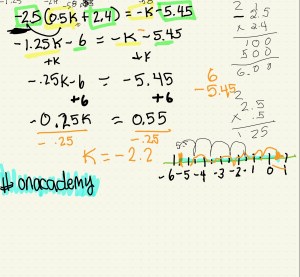 -2.5(0.5K + 2.4) = -K - 5.45
-1.25K - 6 = -K - 5.45
+K +K
-.25K - 6 = -5.45
+6 +6
-0.25K = 0.55
-.25 -.25
K = -2.2
#onacademy
6
-5.45
2
2.5
x 2.4
100
500
6.00
2
2.5
x .5
125
5.5
-6 -5 -4 -3 -2 -1 0 1